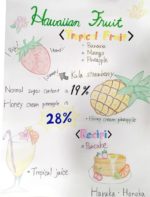 Hawaiian Fruit
<Tropical Fruit>
• Banana
• Mango
• Pineapple
Kula strawberry
Normal sugar content is 19%
Honey cream pineapple is
28%
• Honey cream pineapple
<Recipi>
• Pancake
• Tropical juice
Haruka・Honoka